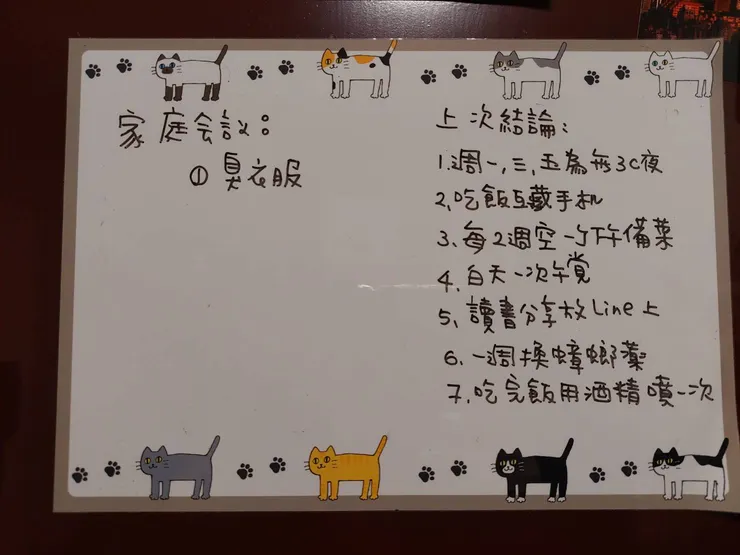 家庭会议:
① 臭衣服
上次結論:
1.週一,三,五為無3C夜
2.吃飯互藏手机
3.每2週空一个下午備菜
4.白天一次午覚
5.讀書分享放Line上
6.一週換蟑螂藥
7.吃完飯用酒精噴一次